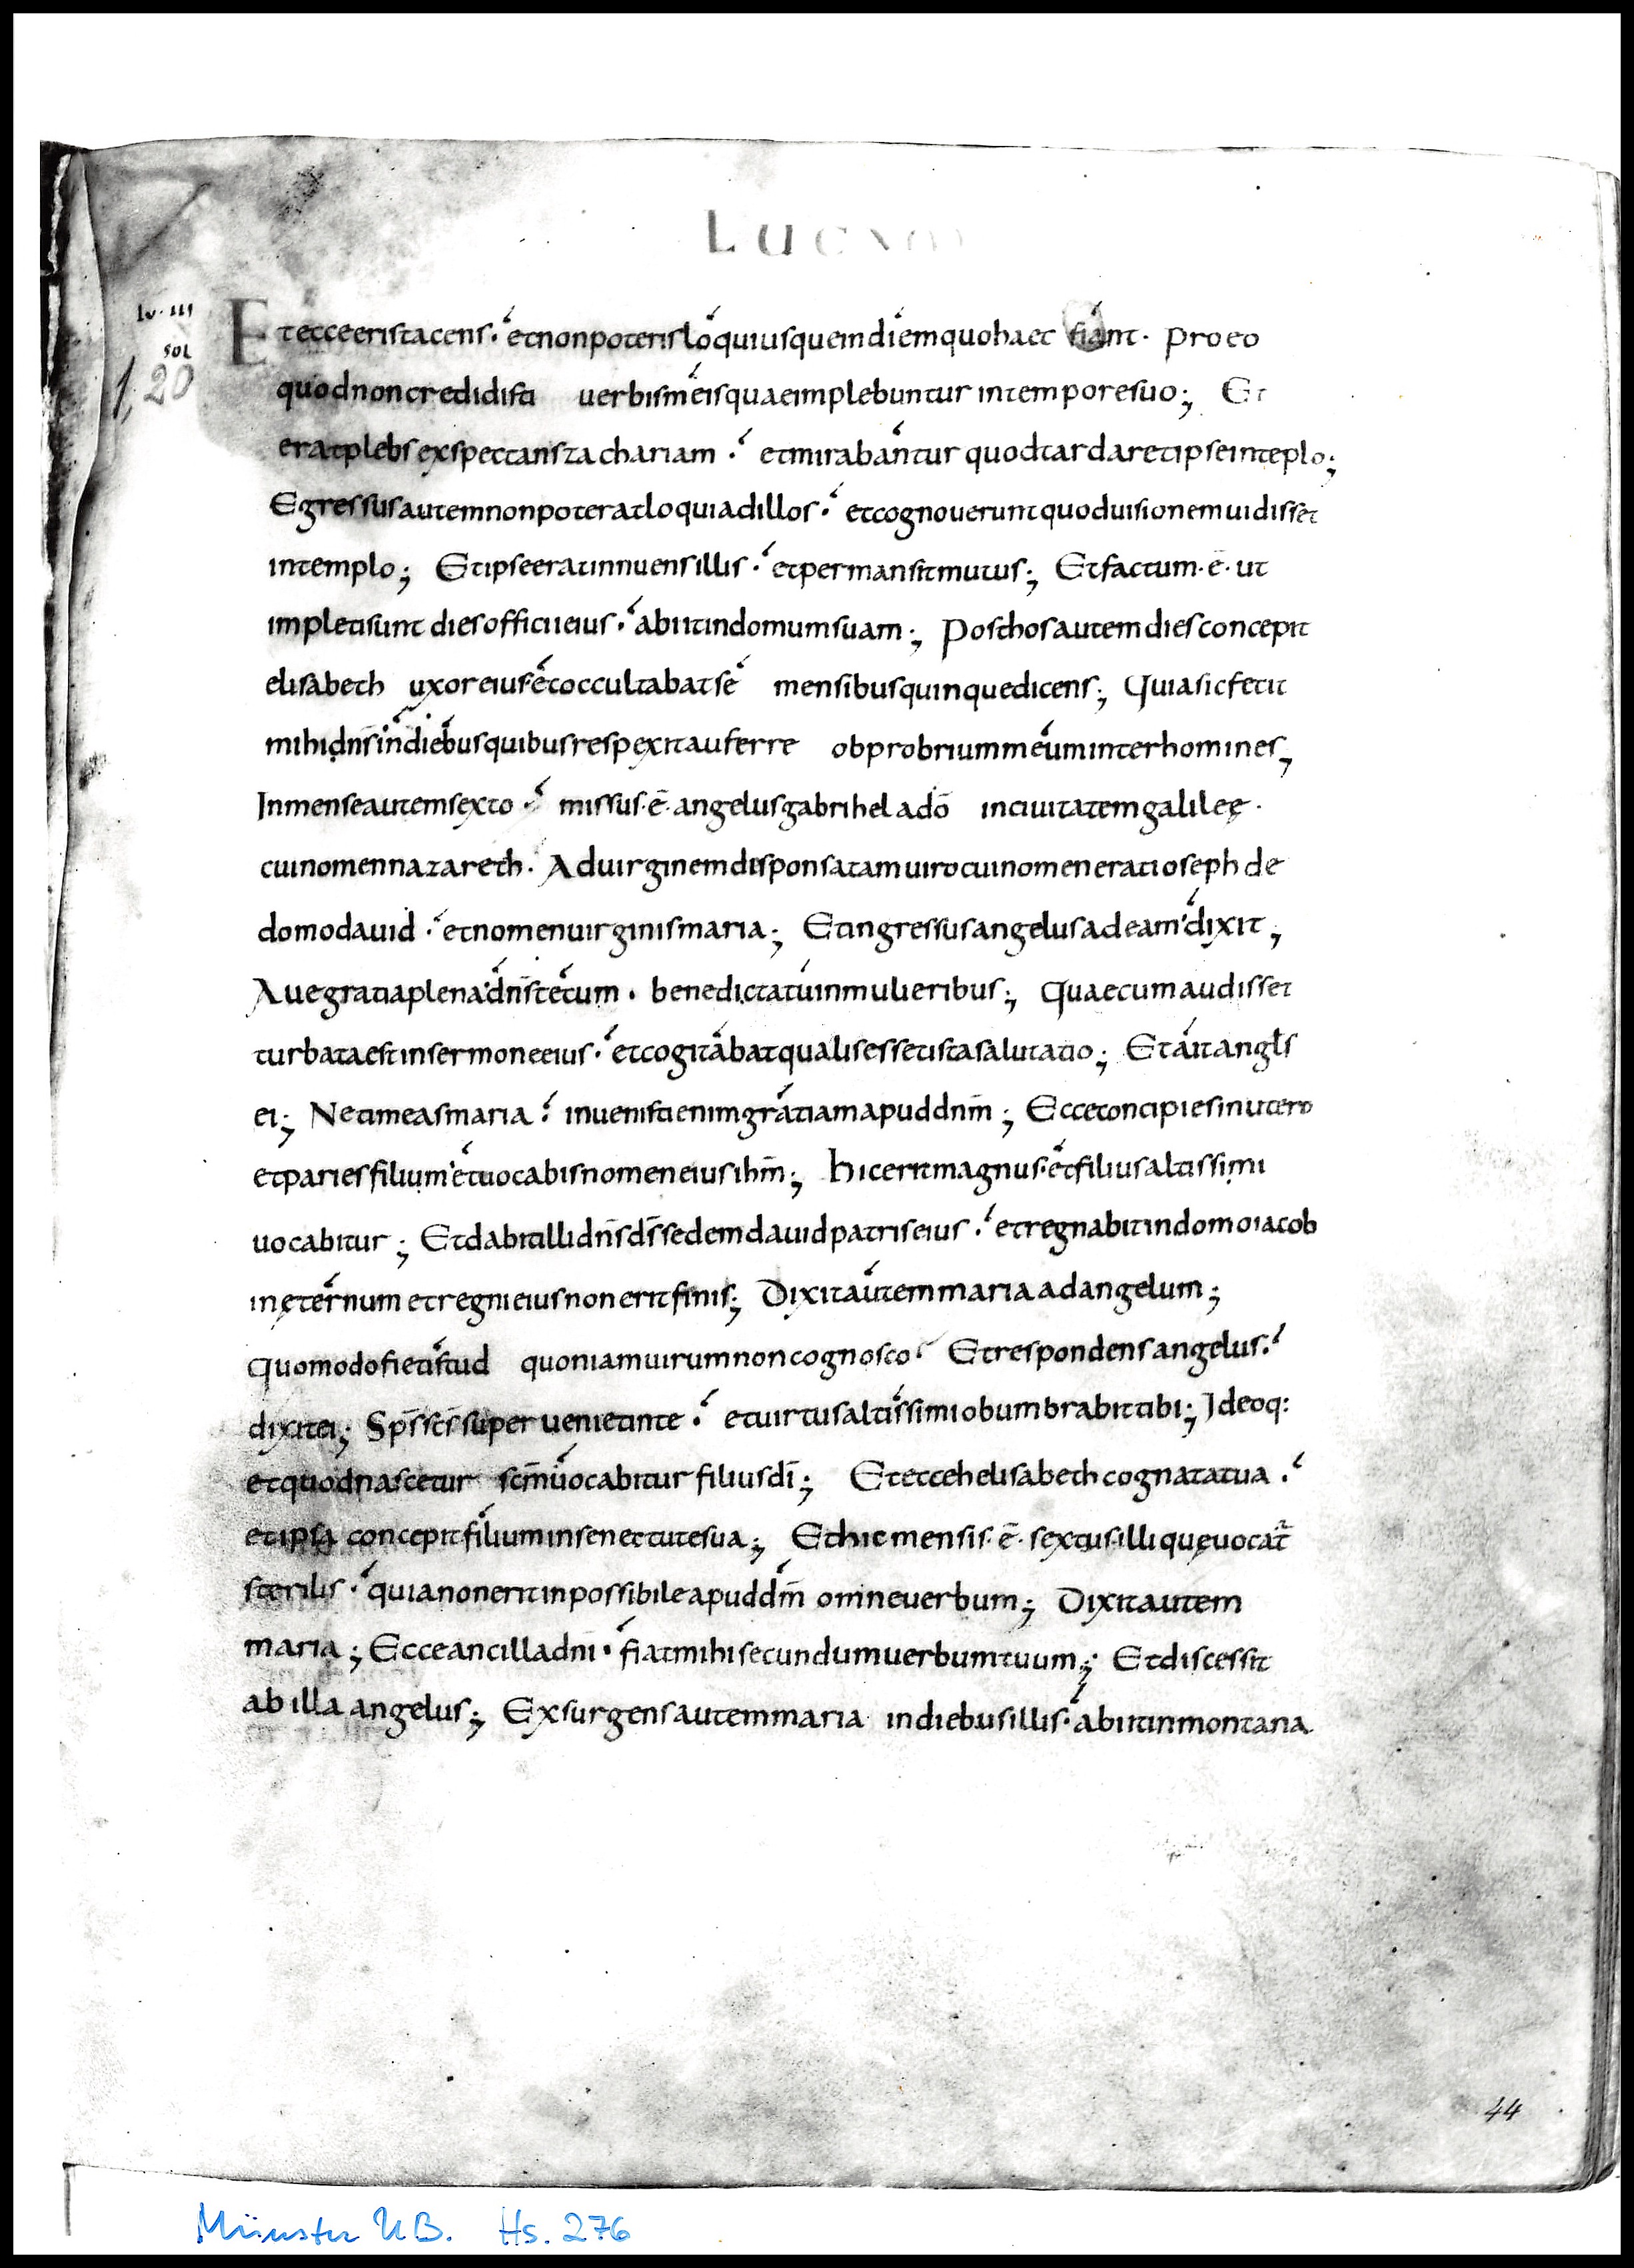 LUCAM
lu · III
SOL
1,20
Et ecce eris tacens · et non poteris loqui usque in diem quo haec fiant · pro eo
quod non credidisti uerbis meis quae implebuntur in tempore suo ; Et
erat plebs exspectans zachariam · et mirabantur quod tardaret ipse in teplo ;
Egressus autem non poterat loqui ad illos · et cognouerunt quod uisionem uidisset
in templo ; Et ipse erat innuens illis · et permansit mutus ; Et factum · ē · ut
impleti sunt dies officii eius · abiit in domum suam ; Post hos autem dies concepit
elisabeth uxor eius · et occultabat se mensibus quinque dicens ; Quia sic fecit
mihi dn̄s in diebus quibus respexit auferre obprobrium meum inter homines ;
In mense autem sexto · missus · ē · angelus gabrihel a dō in ciuitatem galileę ·
cui nomen nazareth · Ad uirginem disponsatam uiro cui nomen erat ioseph de
domo dauid · et nomen uirginis maria ; Et ingressus angelus ad eam dixit ;
Aue gratia plena dn̄s tecum · benedicta tu in mulieribus ; Quae cum audisset
turbata est in sermone eius · et cogitabat qualis esset ista salutatio ; Et ait angl̄s
ei ; Ne timeas maria · inuenisti enim gratiam apud dnm̄ ; Ecce concipies in utero
et paries filium et uocabis nomen eius ihm̄ ; hic erit magnus · et filius altissimi
uocabitur ; Et dabit illi dn̄s ds̄ sedem dauid patris eius · et regnabit in domo iacob
in ęternum et regni eius non erit finis ; Dixit autem maria ad angelum ;
Quomodo fiet istud quoniam uirum non cognosco · Et respondens angelus ·
dixit ei ; Sps̄ scs̄ superueniet in te · et uirtus altissimi obumbrabit tibi ; Ideoq:
et quod nascetur scm̄ uocabitur filius dī ; Et ecce helisabeth cognata tua ·
et ipsa concepit filium in senectute sua ; Et hic mensis · ē · sextus illi quę uocat̄
sterilis · quia non erit inpossibile apud dm̄ omne uerbum ; Dixit autem
maria ; Ecce ancilla dnī · fiat mihi secundum uerbum tuum ; Et discessit
ab illa angelus ; Exsurgens autem maria in diebus illis · abiit in montana
44
Münster UB. Hs. 276